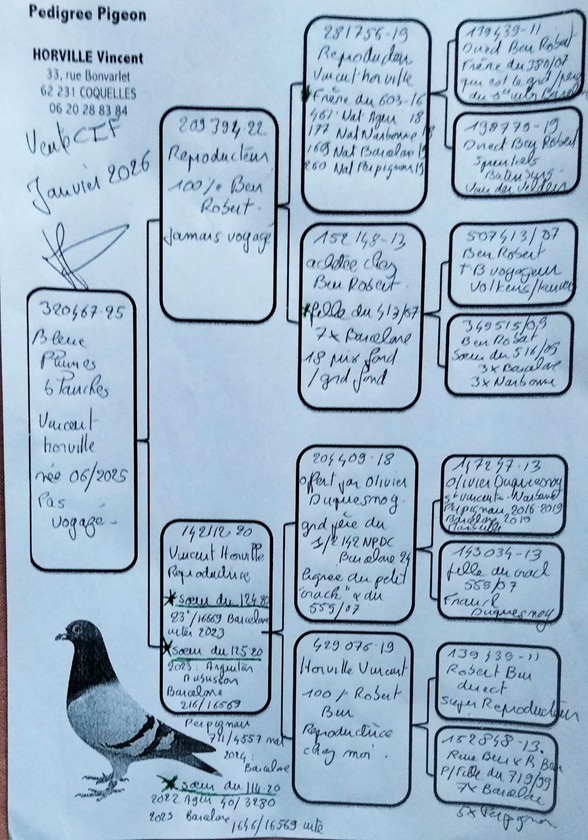 Pedigree Pigeon
HORVILLE Vincent
33, rue Bonvarlet
62 231 COQUELLES
06 20 28 83 84
Vente CIF
Janvier 2026
320467-25
Bleue
Plumes
blanches
Vincent
horville
née 06/2025
Pas
voyagé -
209394-22
Reproducteur
100% Ben
Robert.
Jamais voyagé
142112-20
Vincent Horville
Reproductrice
* soeur du 124-20
23°/16569 Barcelone
inter 2023
* soeur du 125-20
2023. Argenton
Aubusson
Barcelone
216/16569
Perpignan
711/4557 nat
2024.
Barcelone
* soeur du 114-20
2022 Agen 40/3280
2023 Barcelone
1646/16569 inter
281756-19
Reproducteur
Vincent horville
Frère du 603-16
461 Nat Agen 18
177 Nat Narbonne 18
169 Nat Barcelone 19
260 Nat Perpignan 19
152148-13
achetée chez
Ben Robert.
* fille du 413/07
7x Barcelone
18 prix fond
/grd fond
204409-18
offert par Olivier
Duquesnoy.
grd père du
1/2142 NPDC
Barcelone 24
Lignée du petit
"crack" & du
559/07
429076-19
Horville Vincent
100% Robert
Ben
Reproductrice
chez moi.
139439-11
Direct Ben Robert
Frère du 380/07
qui est le grd/père
du
198779-19
Direct Ben Robert
507413/07
Ben Robert
TB voyageur
349515/09
Ben Robert
Soeur du 516/09
3x Barcelone
3x Narbonne
147247-13
Olivier Duquesnoy
St Vincent - Narbonne
Perpignan 2016-2019
Barcelone 2019
Marseille
143034-13
fille du crack
559/07
Franck
Duquesnoy
139439-11
Robert Ben
direct
Super Reproducteur
152848-13.
P/Fille du 719/99
7x Barcelone
5x Perpignan